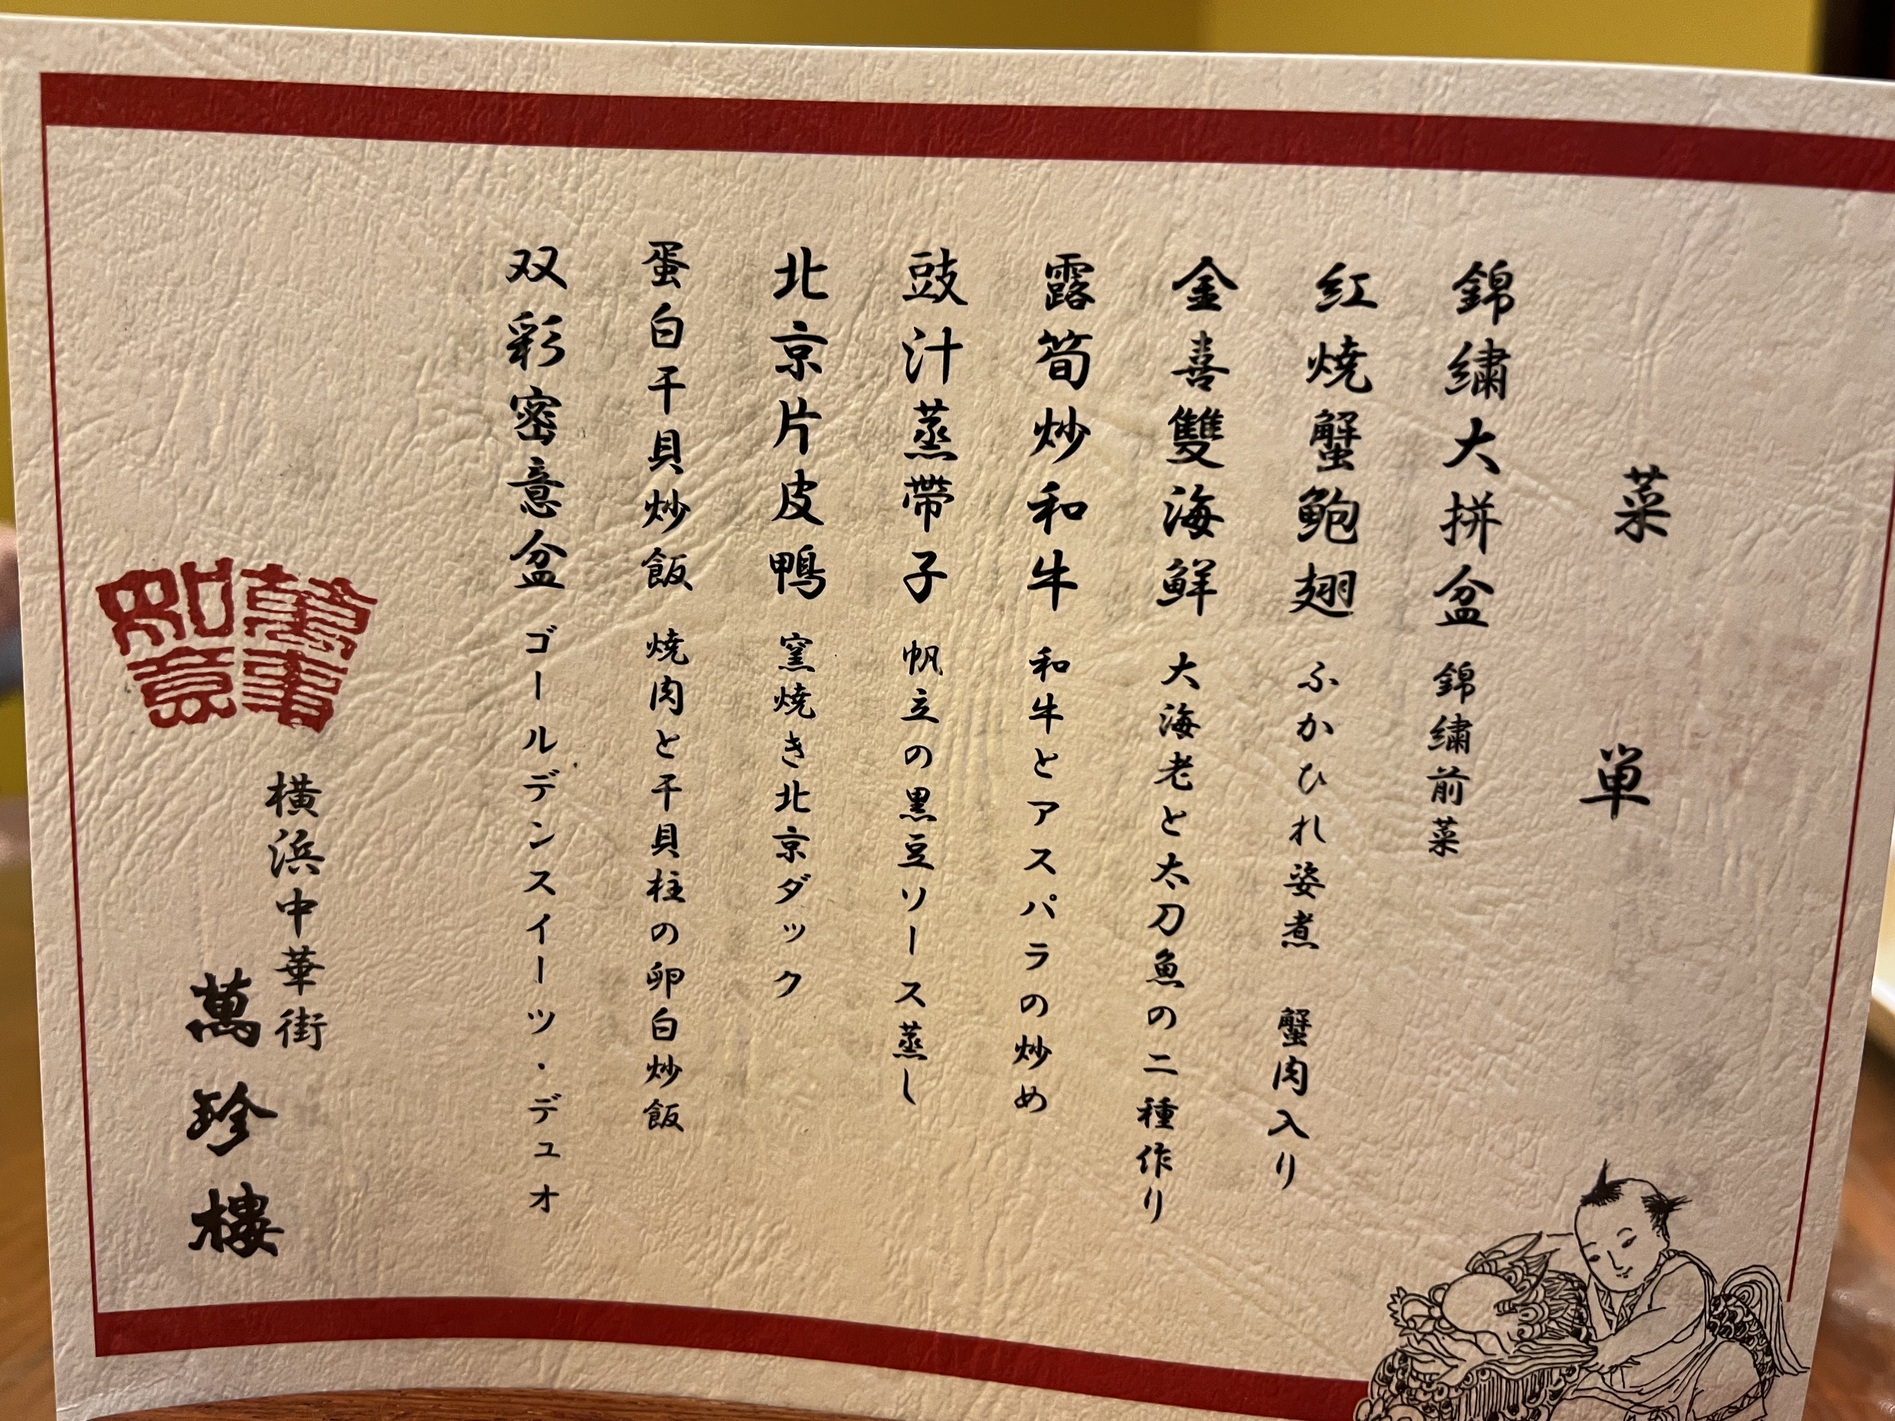 菜単
錦繍大拼盆 錦繍前菜
紅焼蟹鮑翅 ふかひれ姿煮 蟹肉入り
金喜雙海鮮 大海老と太刀魚の二種作り
露筍炒和牛 和牛とアスパラの炒め
豉汁蒸帶子 帆立の黒豆ソース蒸し
北京片皮鴨 窯焼き北京ダック
蛋白干貝炒飯 焼肉と干貝柱の卵白炒飯
双彩密意盆 ゴールデンスイーツ・デュオ
萬事如意
横浜中華街
萬珍樓